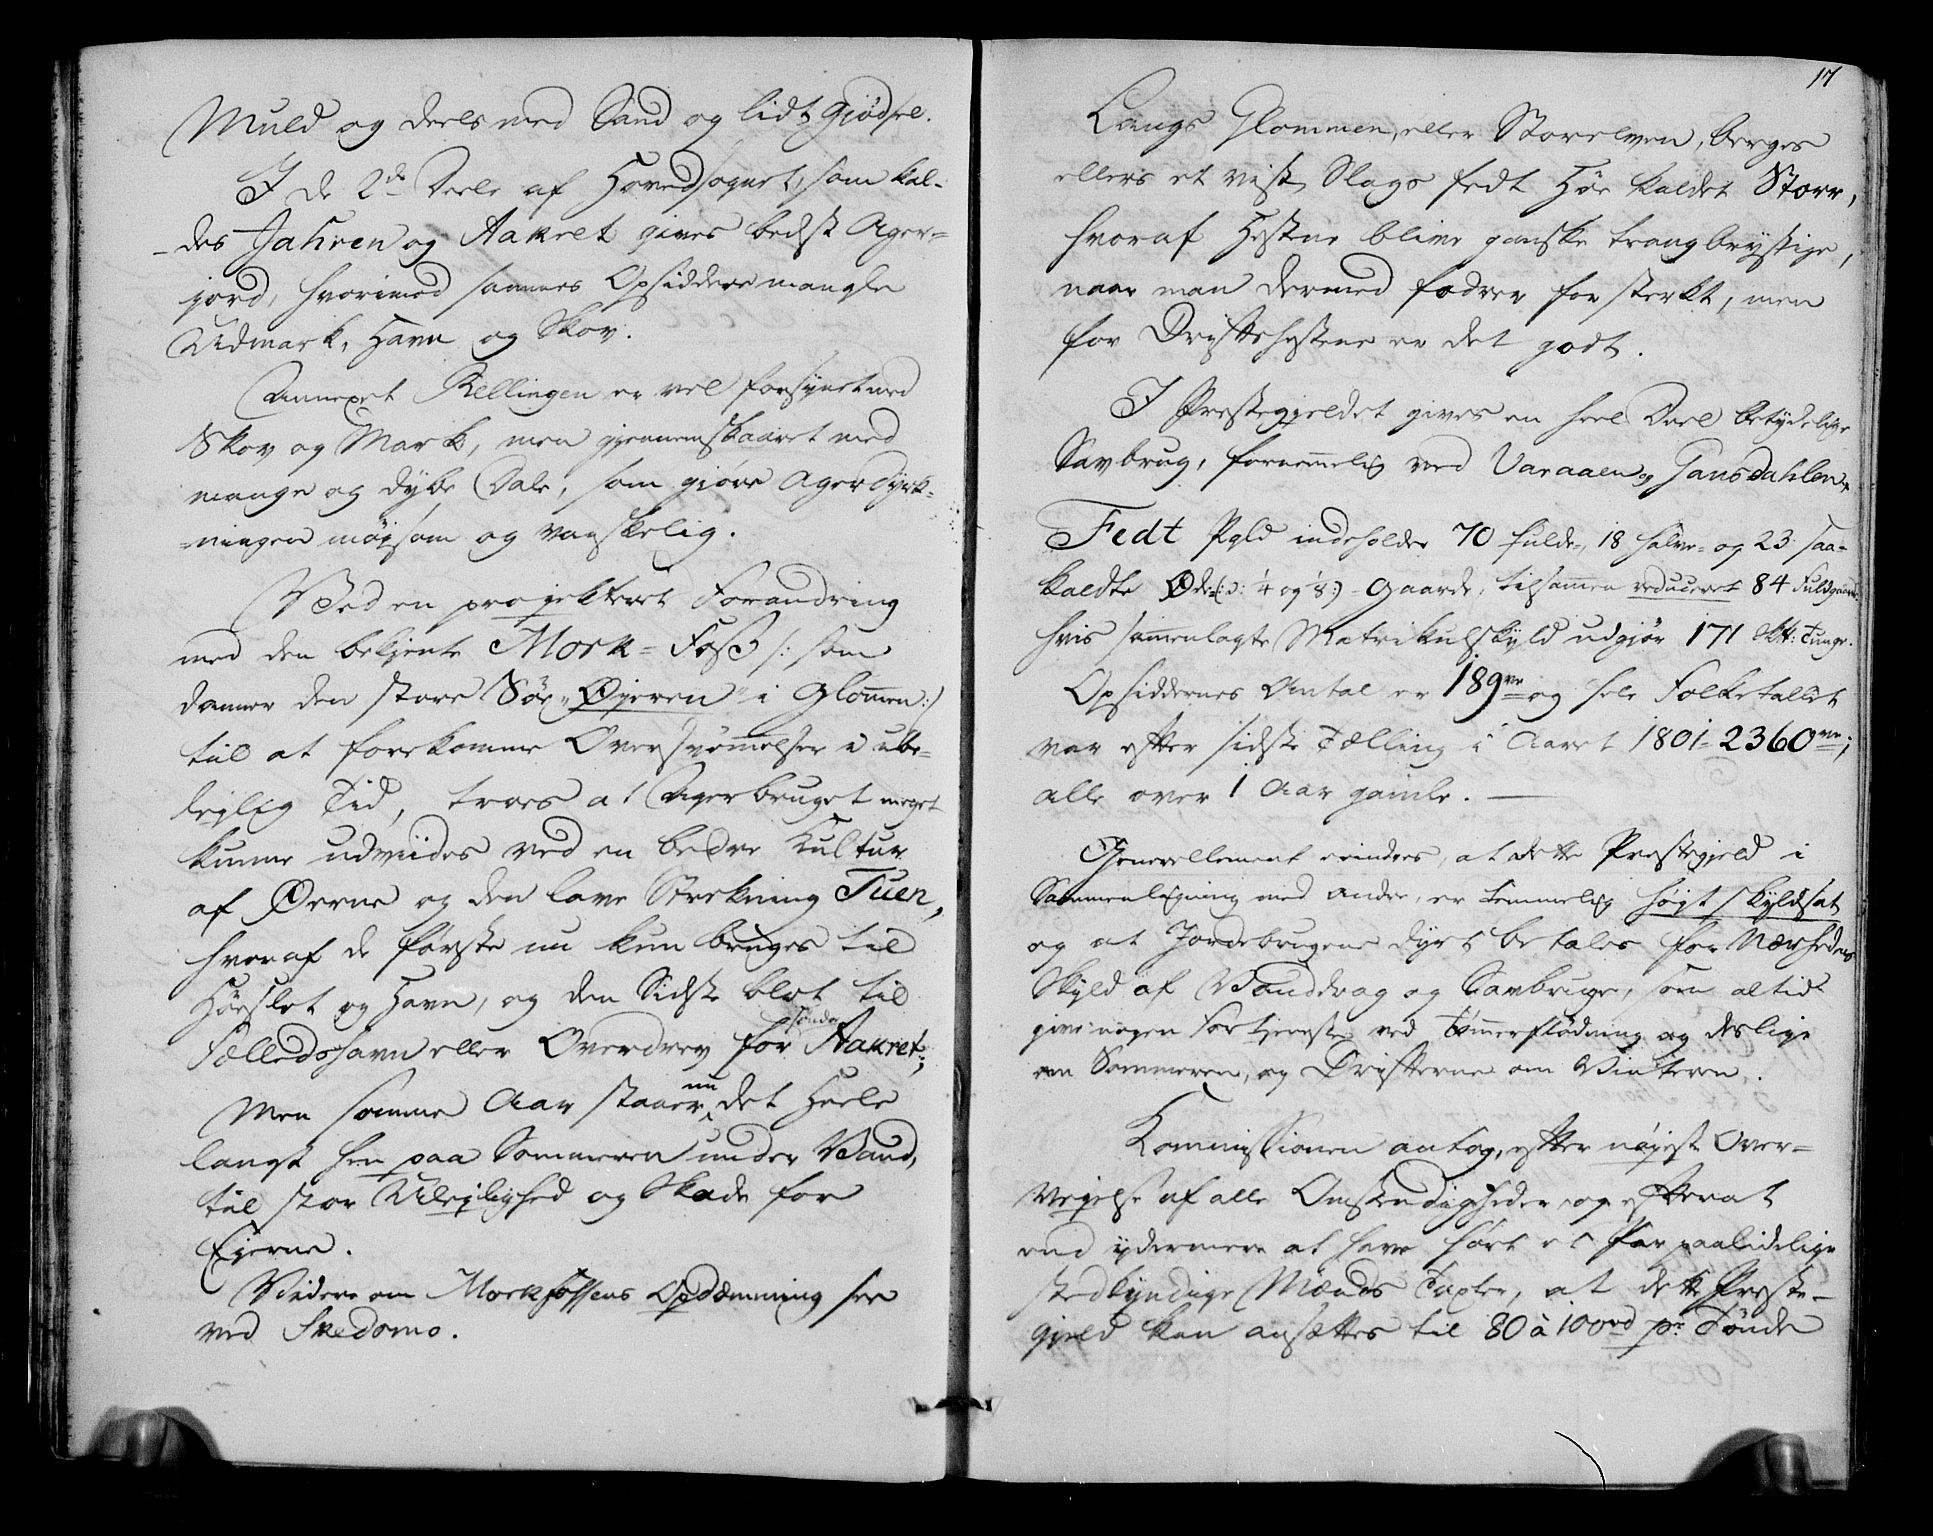 Muld og deels med Sand og lidt Gjødsel.
I de 2de Deele af Hovedsognet, som kal-
des Jahren og Aakret gives bedst Ager-
jord, hvorimod sammes Opsiddere mangle
Udmark, Havn og Skov.
Annexet Rellingen er vel forsynet med
Skov og Mark, men gjennemskaaret med
mange og dybe Dale, som gjøre Agerdyrk-
ningen møjsom og vanskelig.
Ved en projekteret Forandring
med den bekjente Mork-Foss /: som
danner den store Søe "Øjeren" i Glommen:/
til at forekomme Oversvømmelser i ube-
lejlig Tid, troes at Agerbruget meget
kunne udviides ved en bedre Kultur
af Øerne og den lave Strekning Tuen,
hvoraf de første nu kun bruges til
Høeslet og Havn, og den Sidste blot til
Fælledshavn eller Overdrev for Søndre Aakret;
Men somme Aar staaer nu det Heele
langt hen paa Sommeren under Vand,
til stor Ulejlighed og Skade for
Ejerne.
Videre om Morkfossens Opdæmning see
ved Skedsmo.
17
Langs Glommen, eller Storelven, berges
ellers et vist Slags fedt Høe kaldet Storr,
hvoraf Hestene blive ganske trangbrystige,
naar man dermed fodrer for sterkt, men
for Driftshestene er det godt.
I Prestegjeldet gives en heel Deel betydelige
Savbrug, fornemmelig ved Varaaen og Gansdahlen.
Fedt Pgld indeholder 70 fulde-, 18 halve- og 23 saa-
kaldte Øde-(: ¼ og ⅛:)-Gaarde, tilsammen reduceret 84 Fuldgaarde
hvis sammenlagte Matrikulskyld udgjør 171 Skt: Tunge.
Opsiddernes Antal er 189ve og hele Folketallet
var efter sidste Tælling i Aaret 1801- 2360ve;
alle over 1 Aar gamle.
Generellement erindres, at dette Prestegjeld i
Sammenligning med andre, er temmelig højt skyldsat
og at Jordebrugene dyrt betales for Nærhedens
Skyld af Vanddrag og Savbruge, som altid
give nogen Fortjeneste ved Tømmerflødning og deslige
om Sommeren, og Drifterne om Vinteren.
Kommissionen antog, efter nøjeste Over-
vejelse af alle Omstændigheder, og efterat
end ydermere at have hørt et Par paalidelige
stedkyndige Mænds Taxter, at dette Preste-
gjeld kan ansættes til 80 à 100rd pr Tønde